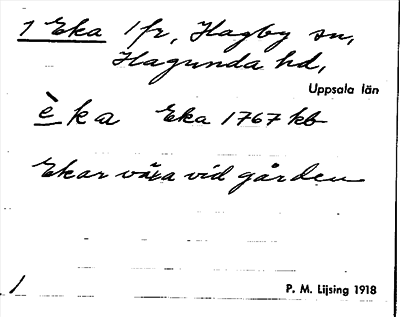 1 Eka 1 fr, Hagby sn,
Hagunda hd,
Uppsala län
è k a Eka 1767 kb
Ekar växa vid gården
1 P. M. Lijsing 1918